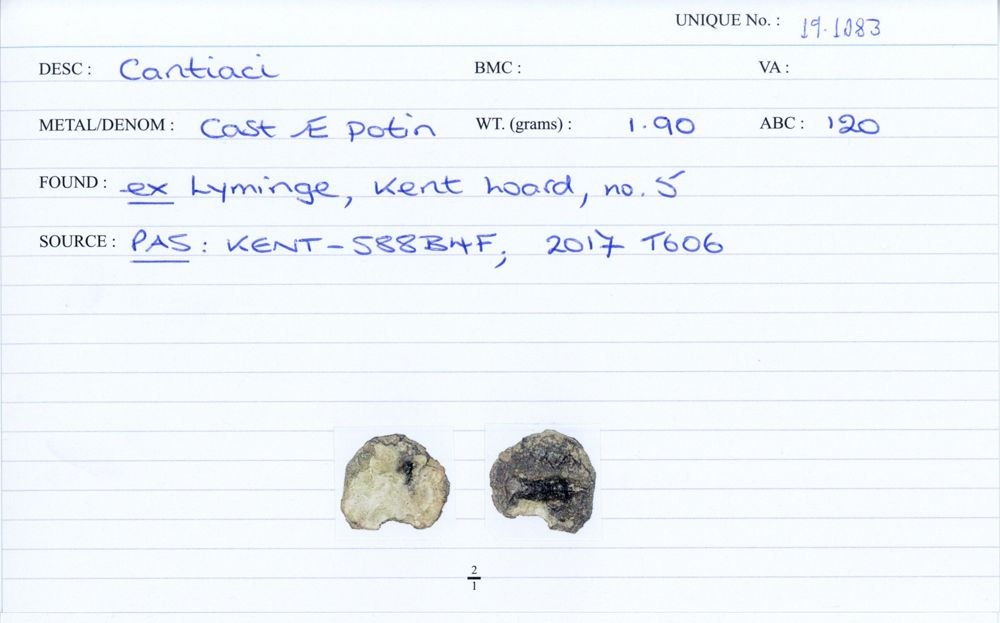 UNIQUE No. : 19.1083
DESC : Cantiaci BMC : VA :
METAL/DENOM : Cast Æ potin WT. (grams) : 1.90 ABC : 120
FOUND : ex Lyminge, Kent hoard, no. 5
SOURCE : PAS : KENT-588B4F; 2017 T606
2
1